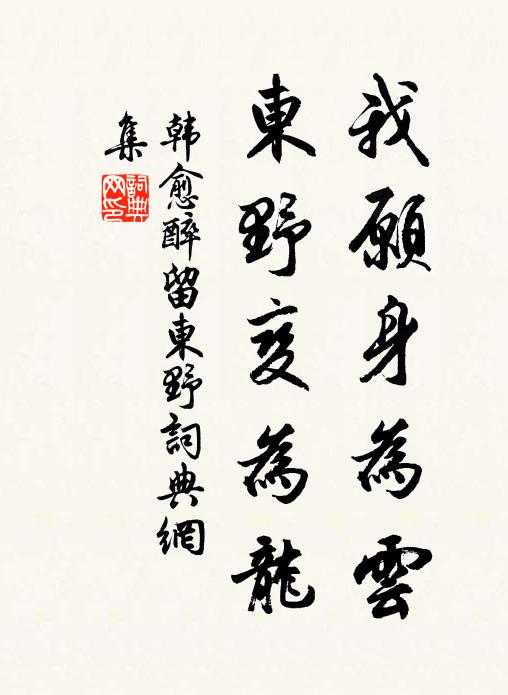 我願身為雲
東野变為龍
韩愈醉留東野詞典網
集
詞典
网印